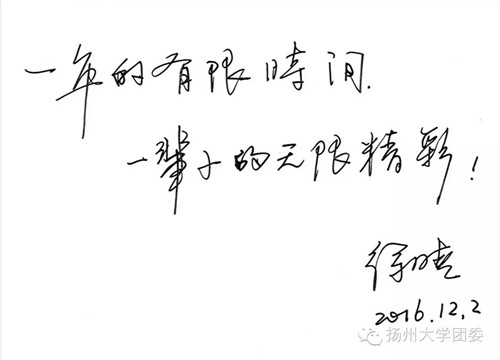 一年的有限時间.
一辈子的无限精彩!
徐晓
2016.12.2
扬州大学团委